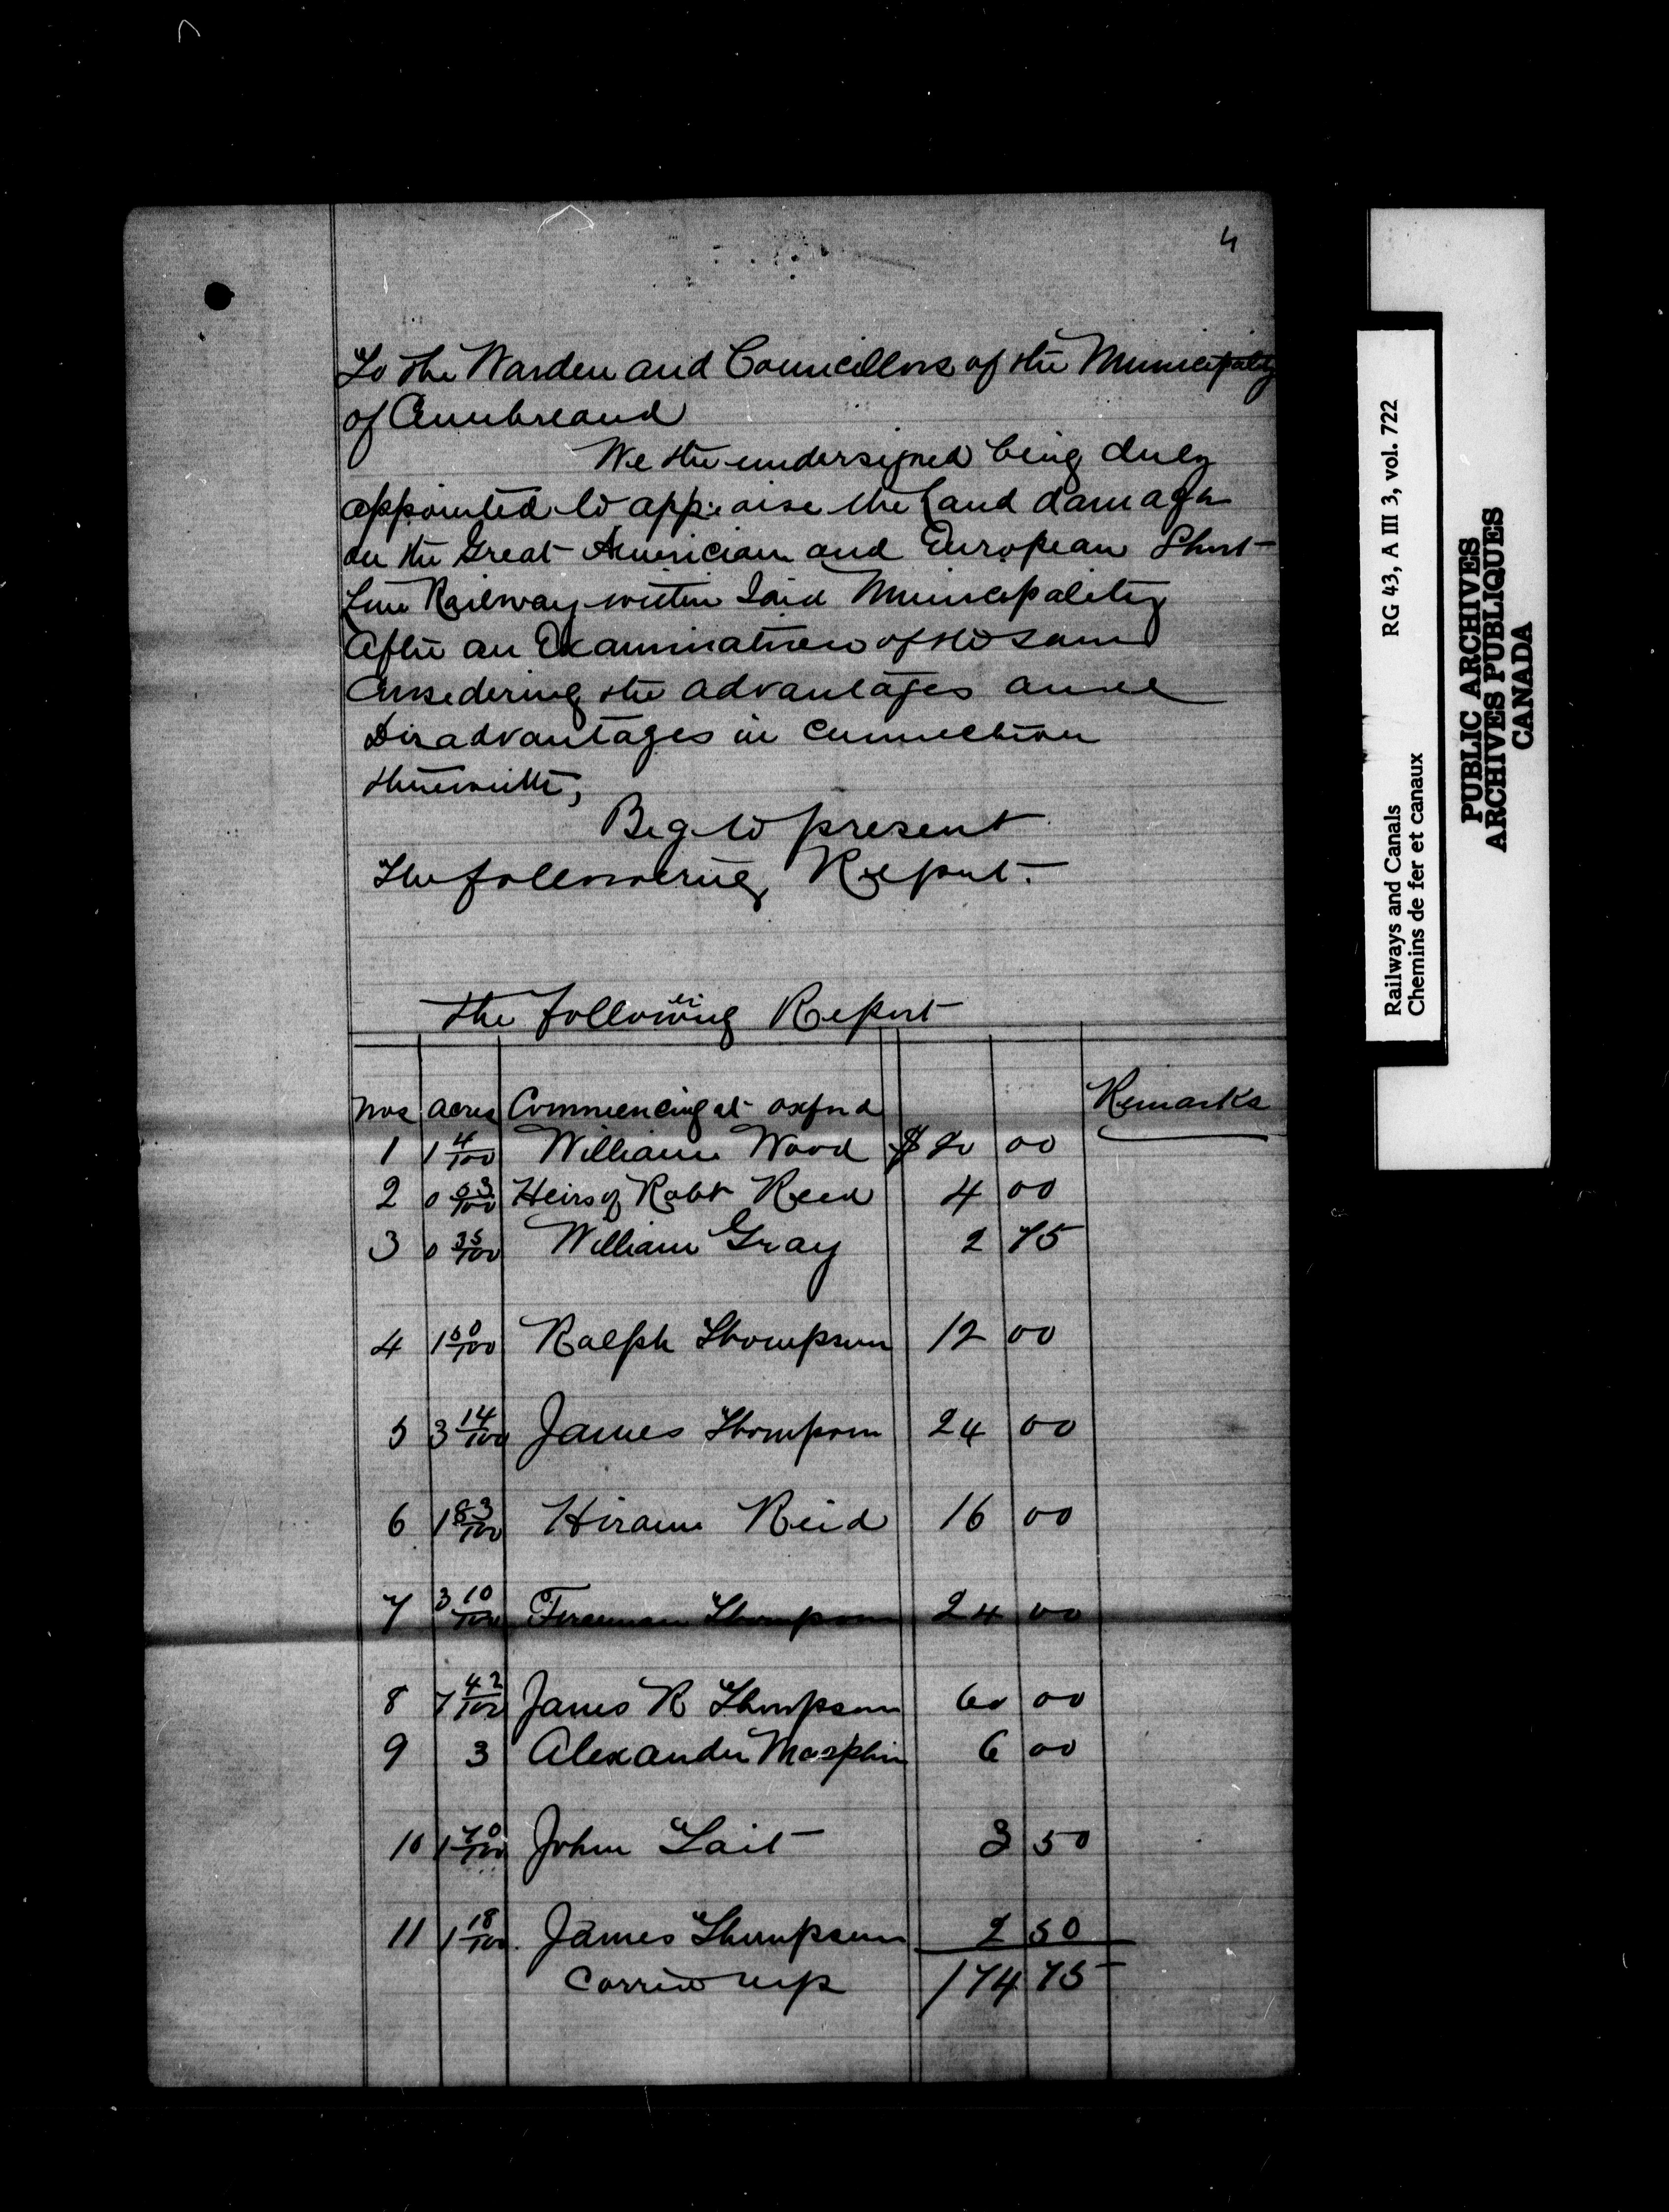 4
To the Warden and Councellors of the Municipality
of Cumbreland
We the undersigned being duly
appointed to appraise the Land damage
on the Great American and European Short
Line Railway within Said Municipality
After an Examination of the same
Considering the advantages and
Disadvantages in Connection
therewith,
Beg to present
The following Report.
The following Report
Nos acres Commencing at oxford Remarks
1 1 4/100 William Wood $ 20 00
2 0 63/100 Heirs of Robt Reed 4 00
3 0 35/100 William Gray 2 75
4 1 60/100 Ralph Thompson 12 00
5 3 14/100 James Thompson 24 00
6 1 83/100 Hiram Reid 16 00
7 3 10/100 Thompson 24 00
8 7 42/100 James R Thompson 60 00
9 3 Alexander 6 00
10 1 70/100 John Tait 3 50
11 1 18/100 James Thompson 2 50
Carried up 174 75
RG 43, A III 3, vol. 722
Railways and Canals
Chemins de fer et canaux
PUBLIC ARCHIVES
ARCHIVES PUBLIQUES
CANADA